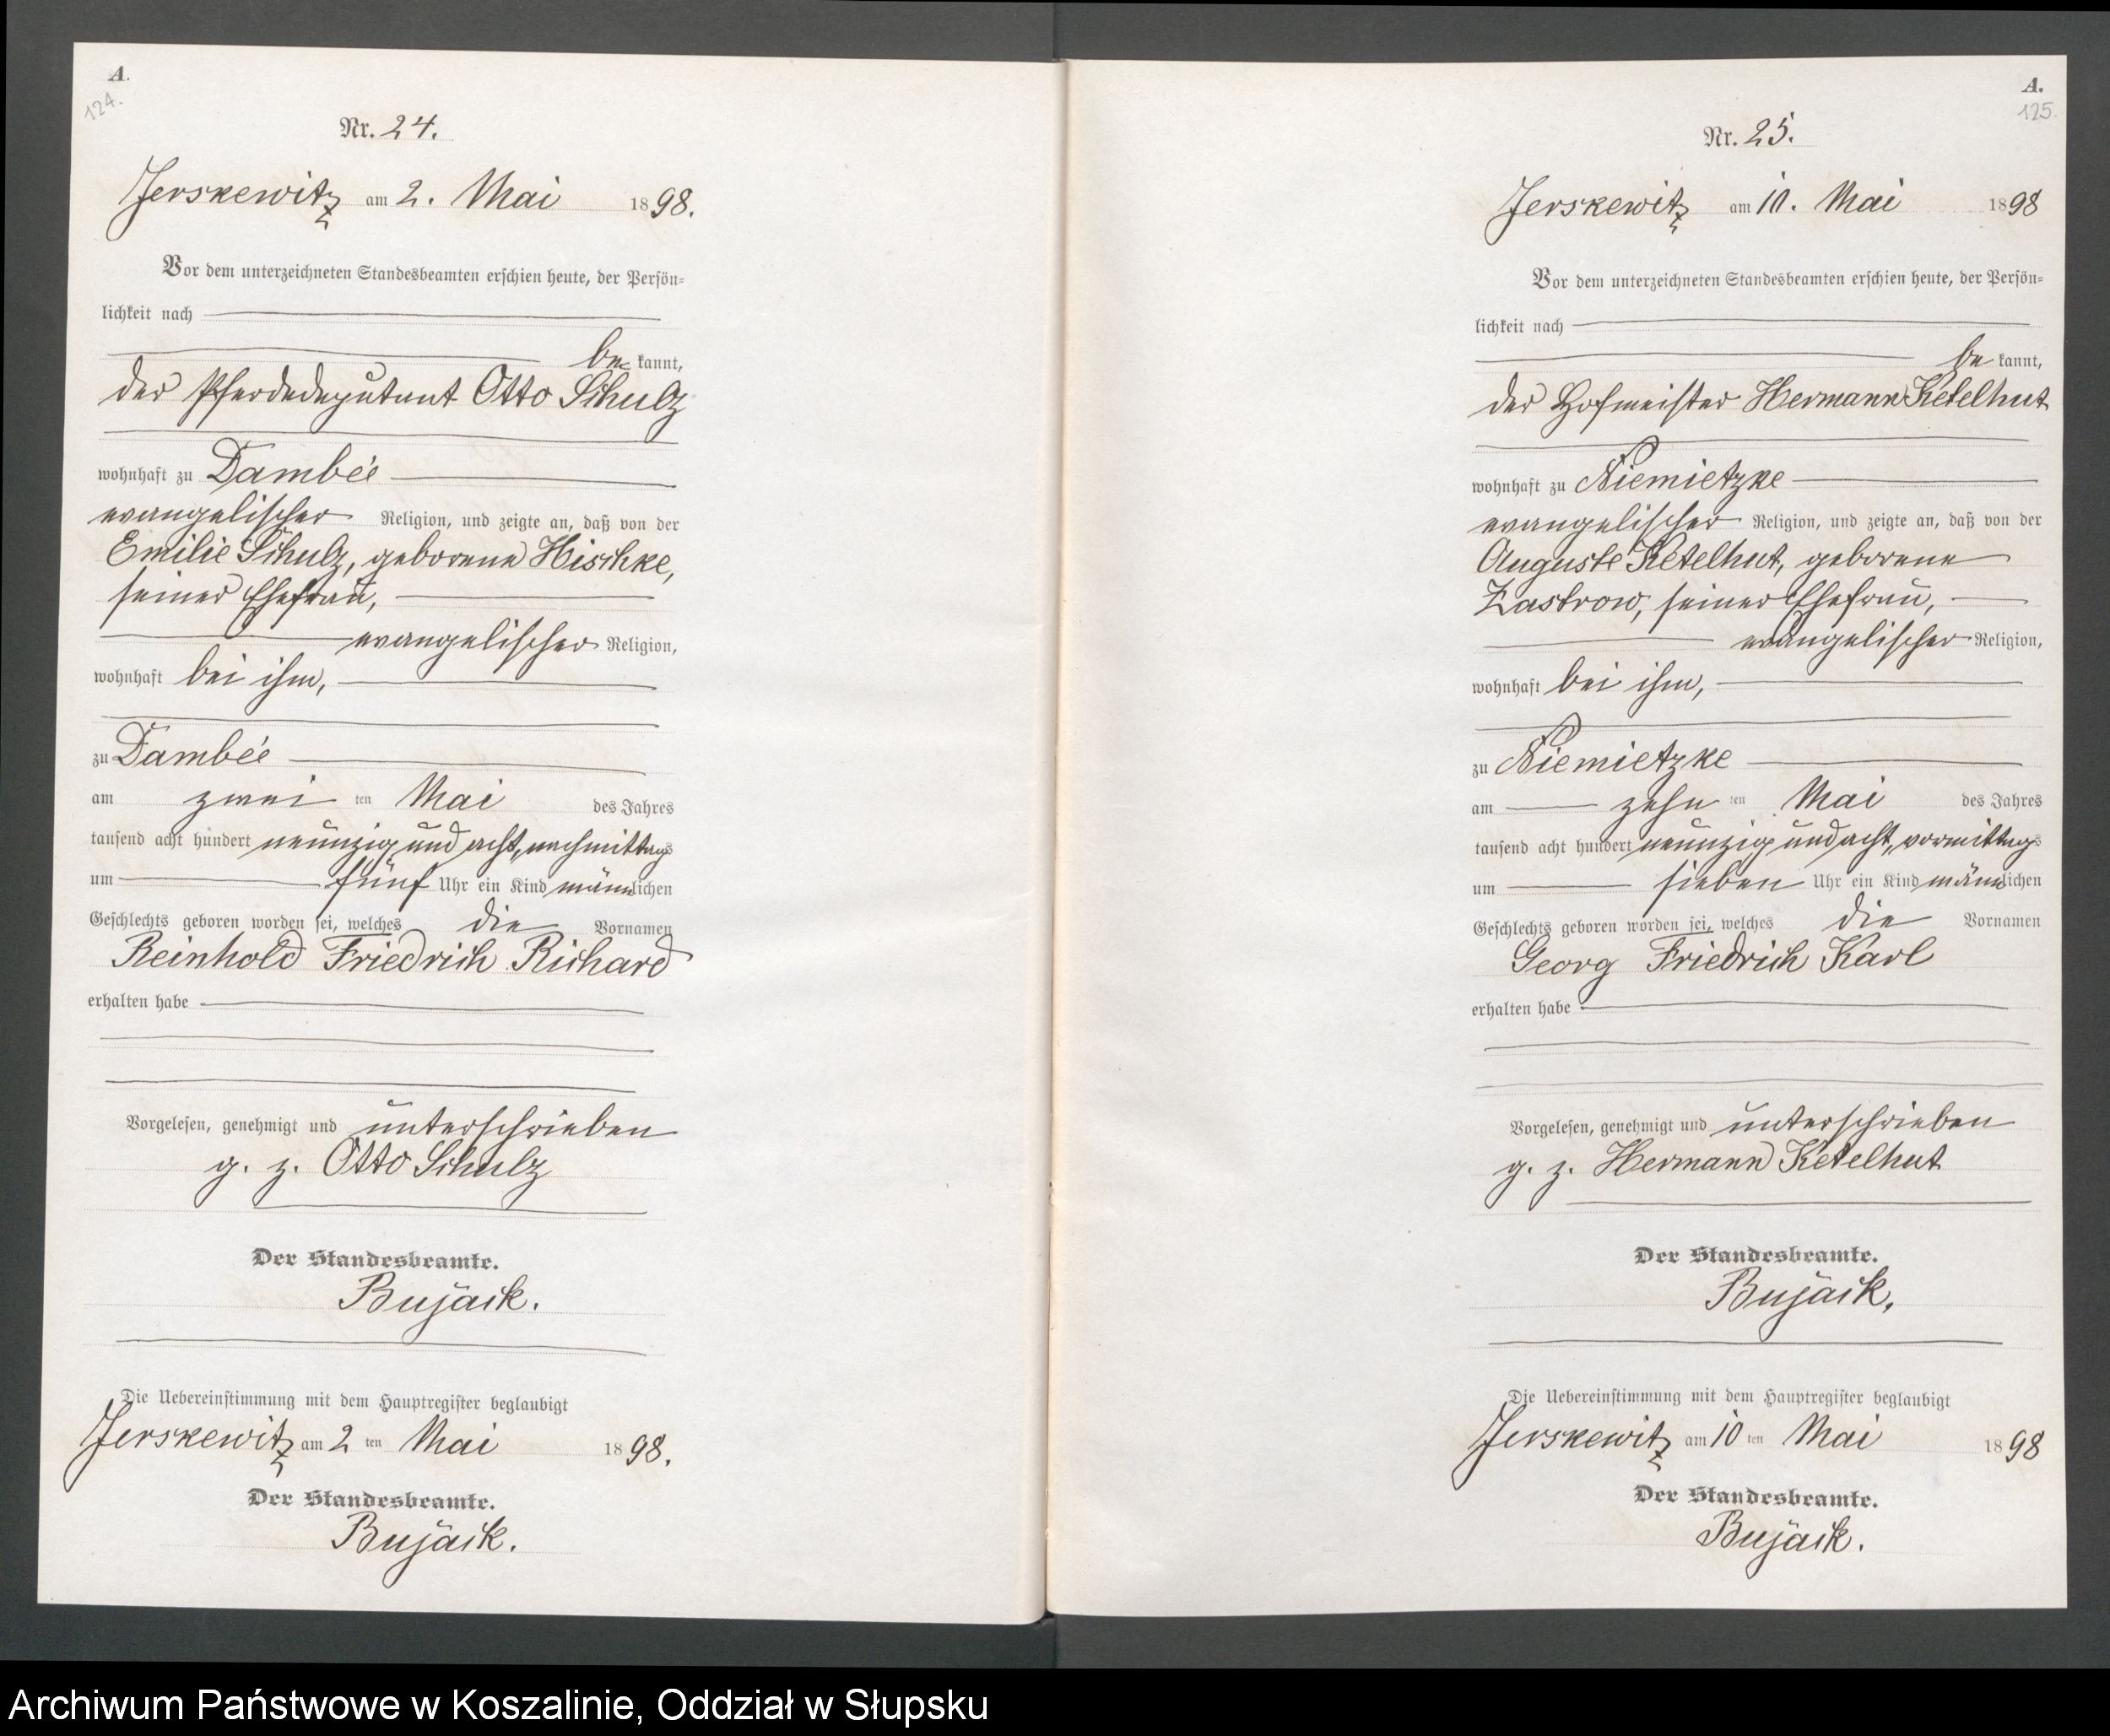 A.
124.
Nr. 24.
Jerskewitz am 2. Mai 1898.
Vor dem unterzeichneten Standesbeamten erschien heute, der Persön=
lichkeit nach
be kannt,
der Pferdedeputant Otto Schulz
wohnhaft zu Dambée
evangelischer Religion, und zeigte an, daß von der
Emilie Schulz, geborene Hischke,
seiner Ehefrau,
evangelischer Religion,
wohnhaft bei ihm,
zu Dambée
am zwei ten Mai des Jahres
tausend acht hundert neunzig und acht, nachmittags
um fünf Uhr ein Kind männlichen
Geschlechts geboren worden sei, welches die Vornamen
Reinhold Friedrich Richard
erhalten habe
Vorgelesen, genehmigt und unterschrieben
g. z. Otto Schulz
Der Standesbeamte.
Bujack.
Die Uebereinstimmung mit dem Hauptregister beglaubigt
Jerskewitz am 2 ten Mai 1898.
Der Standesbeamte.
Bujack.
A.
125.
Nr. 25.
Jerskewitz am 10. Mai 1898
Vor dem unterzeichneten Standesbeamten erschien heute, der Persön=
lichkeit nach
be kannt,
der Hofmeister Hermann Ketelhut
wohnhaft zu Niemietzke
evangelischer Religion, und zeigte an, daß von der
Auguste Ketelhut, geborene
Zastrow, seiner Ehefrau,
evangelischer Religion,
wohnhaft bei ihm,
zu Niemietzke
am zehn ten Mai des Jahres
tausend acht hundert neunzig und acht, vormittags
um sieben Uhr ein Kind männlichen
Geschlechts geboren worden sei, welches die Vornamen
Georg Friedrich Karl
erhalten habe
Vorgelesen, genehmigt und unterschrieben
g. z. Hermann Ketelhut
Der Standesbeamte.
Bujack.
Die Uebereinstimmung mit dem Hauptregister beglaubigt
Jerskewitz am 10 ten Mai 1898
Der Standesbeamte.
Bujack.
Archiwum Państwowe w Koszalinie, Oddział w Słupsku